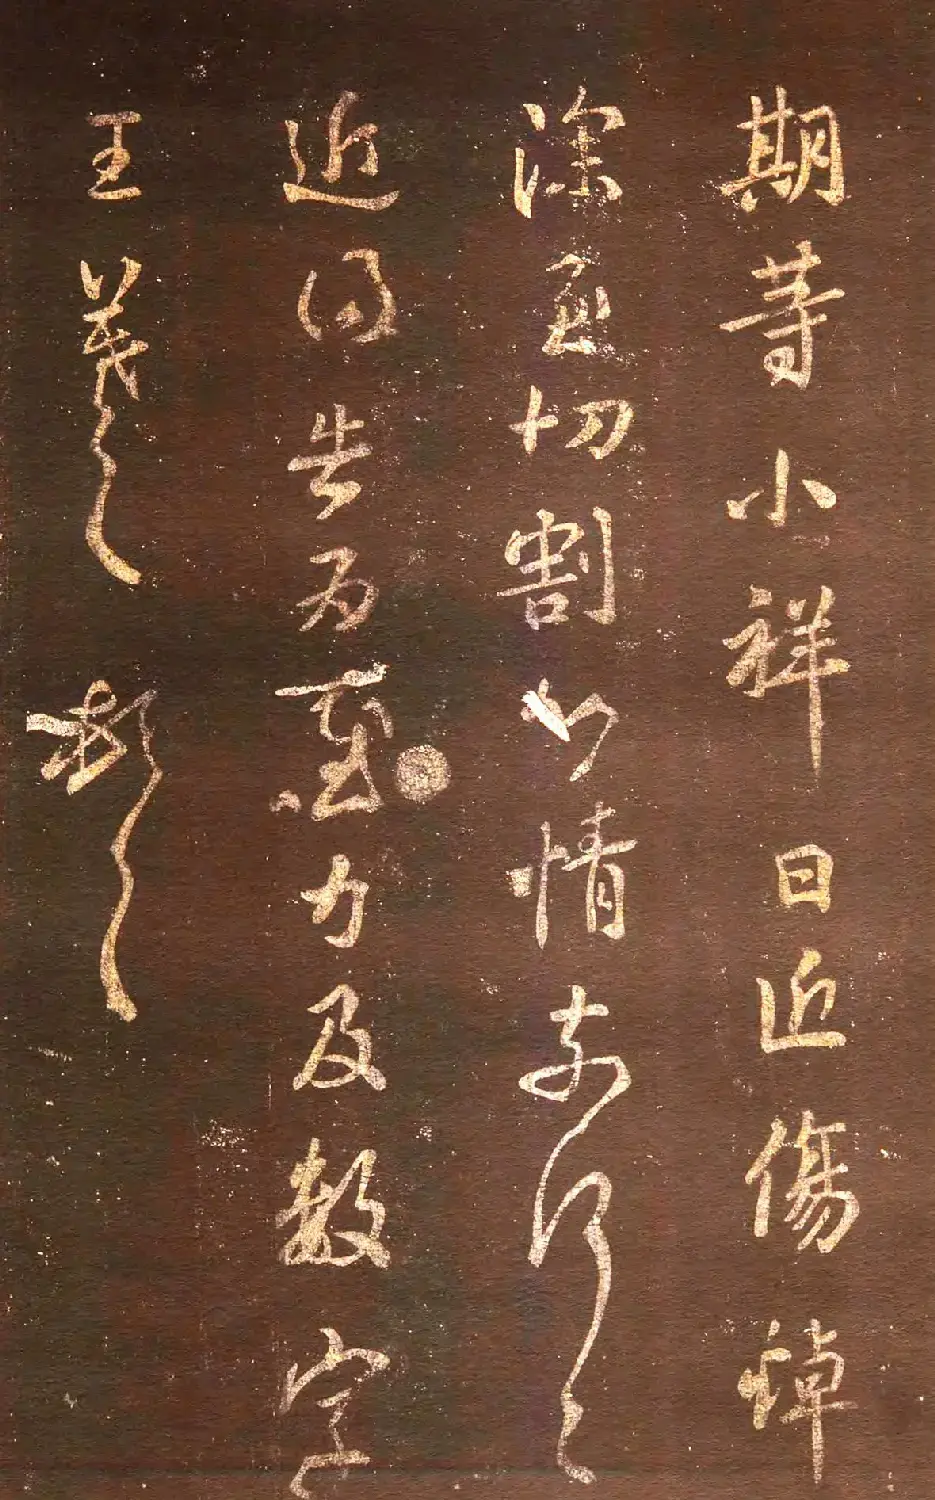 期等小祥日近傷悼
深至切割心情奈何々
近告為力及數字
王羲之頓首